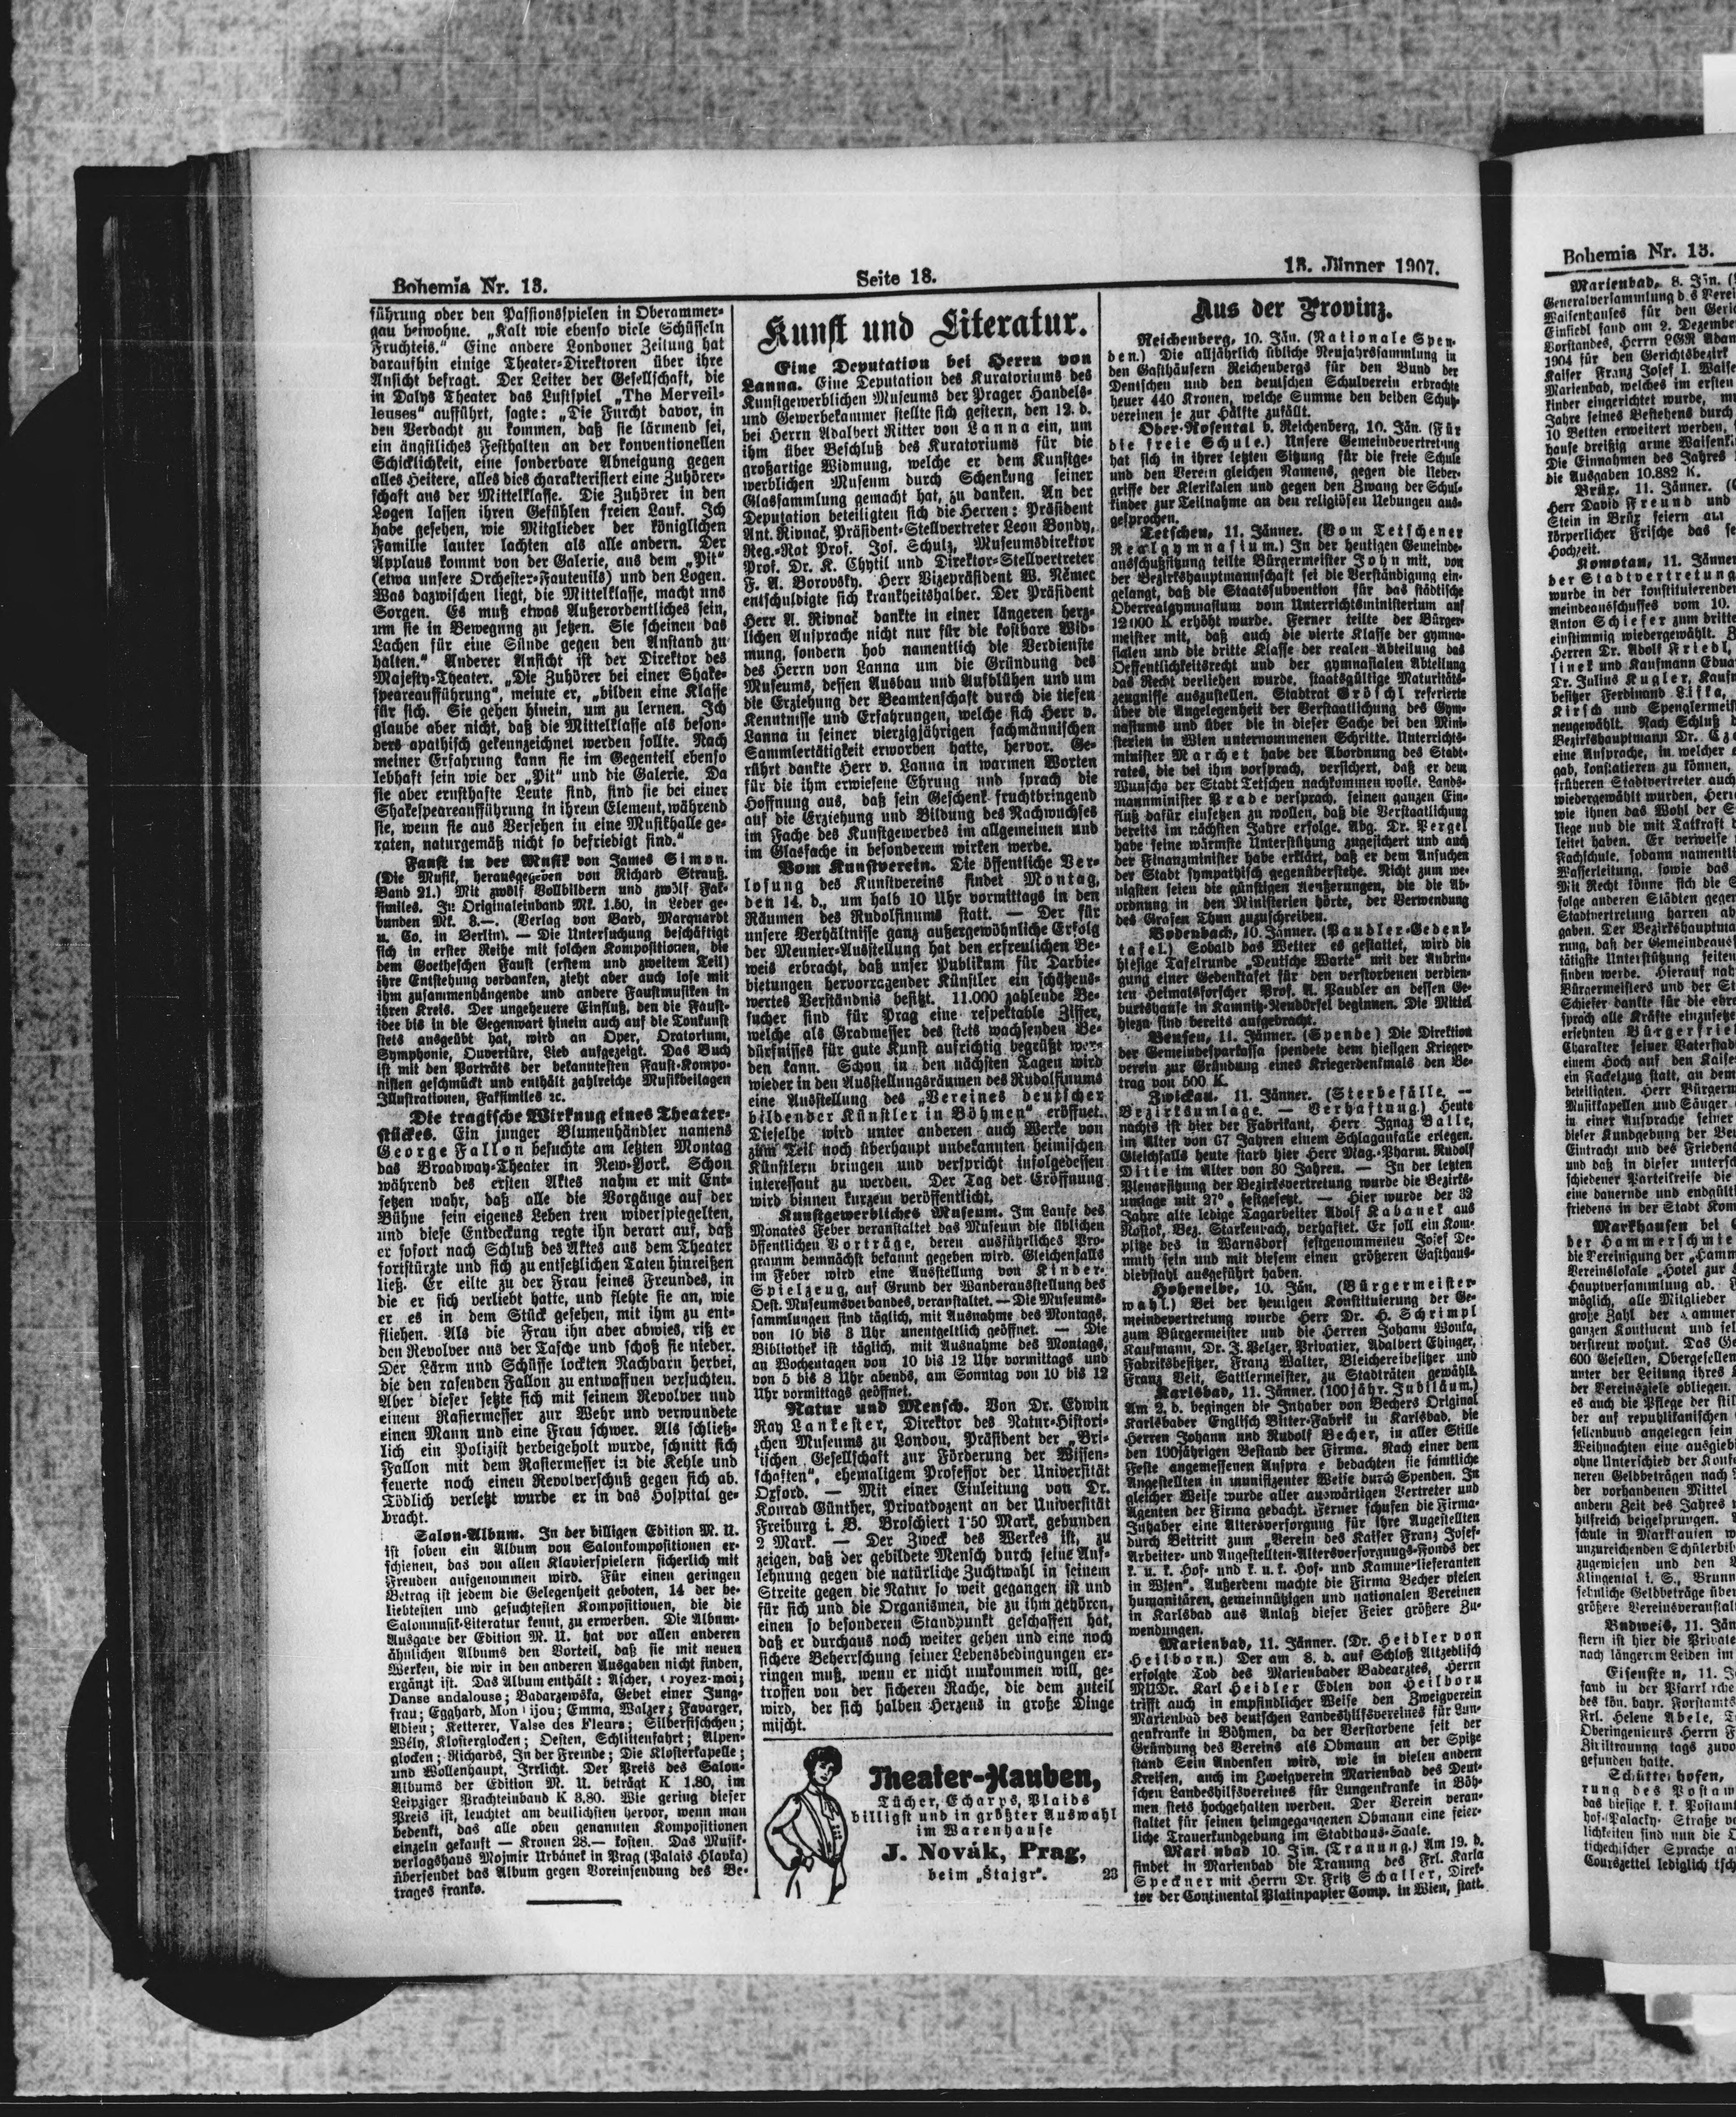 Bohemia Nr. 13.
Seite 18.
13. Jänner 1907.
führung oder den Passionsspielen in Oberammer-
gau beiwohne. „Kalt wie ebenso viele Schüsseln
Fruchteis.“ Eine andere Londoner Zeitung hat
daraufhin einige Theater-Direktoren über ihre
Ansicht befragt. Der Leiter der Gesellschaft, die
in Dalys Theater das Lustspiel „The Merveil-
leuses“ aufführt, sagte: „Die Furcht davor, in
den Verdacht zu kommen, daß sie lärmend sei,
ein ängstliches Festhalten an der konventionellen
Schicklichkeit, eine sonderbare Abneigung gegen
alles Heitere, alles dies charakterisiert eine Zuhörer-
schaft aus der Mittelklasse. Die Zuhörer in den
Logen lassen ihren Gefühlen freien Lauf. Ich
habe gesehen, wie Mitglieder der königlichen
Familie lauter lachten als alle andern. Der
Applaus kommt von der Galerie, aus dem „Pit“
(etwa unsere Orchester-Fauteuils) und den Logen.
Was dazwischen liegt, die Mittelklasse, macht uns
Sorgen. Es muß etwas Außerordentliches sein,
um sie in Bewegung zu setzen. Sie scheinen das
Lachen für eine Sünde gegen den Anstand zu
halten.“ Anderer Ansicht ist der Direktor des
Majesty-Theater. „Die Zuhörer bei einer Shake-
speareaufführung“, meinte er, „bilden eine Klasse
für sich. Sie gehen hinein, um zu lernen. Ich
glaube aber nicht, daß die Mittelklasse als beson-
ders apathisch gekennzeichnet werden sollte. Nach
meiner Erfahrung kann sie im Gegenteil ebenso
lebhaft sein wie der „Pit“ und die Galerie. Da
sie aber ernsthafte Leute sind, sind sie bei einer
Shakespeareaufführung in ihrem Element, während
sie, wenn sie aus Versehen in eine Musikhalle ge-
raten, naturgemäß nicht so befriedigt sind.“
Faust in der Musik von James Simon.
(Die Musik, herausgegeben von Richard Strauß.
Band 21.) Mit zwölf Vollbildern und zwölf Fak-
similes. In Originaleinband Mk. 1.50, in Leder ge-
bunden Mk. 3.—. (Verlag von Bard, Marquardt
u. Co. in Berlin). — Die Untersuchung beschäftigt
sich in erster Reihe mit solchen Kompositionen, die
dem Goetheschen Faust (erstem und zweitem Teil)
ihre Entstehung verdanken, zieht aber auch lose mit
ihm zusammenhängende und andere Faustmusiken in
ihren Kreis. Der ungeheuere Einfluß, den die Faust-
idee bis in die Gegenwart hinein auch auf die Tonkunst
stets ausgeübt hat, wird an Oper, Oratorium,
Symphonie, Ouvertüre, Lied aufgezeigt. Das Buch
ist mit den Porträts der bekanntesten Faust-Kompo-
nisten geschmückt und enthält zahlreiche Musikbeilagen
Illustrationen, Faksimiles ꝛc.
Die tragische Wirkung eines Theater-
stückes. Ein junger Blumenhändler namens
George Fallon besuchte am letzten Montag
das Broadway-Theater in New-York. Schon
während des ersten Aktes nahm er mit Ent-
setzen wahr, daß alle die Vorgänge auf der
Bühne sein eigenes Leben treu widerspiegelten,
und diese Entdeckung regte ihn derart auf, daß
er sofort nach Schluß des Aktes aus dem Theater
fortstürzte und sich zu entsetzlichen Taten hinreißen
ließ. Er eilte zu der Frau seines Freundes, in
die er sich verliebt hatte, und flehte sie an, wie
er es in dem Stück gesehen, mit ihm zu ent-
fliehen. Als die Frau ihn aber abwies, riß er
den Revolver aus der Tasche und schoß sie nieder.
Der Lärm und Schüsse lockten Nachbarn herbei,
die den rasenden Fallon zu entwaffnen versuchten.
Aber dieser setzte sich mit seinem Revolver und
einem Rasiermesser zur Wehr und verwundete
einen Mann und eine Frau schwer. Als schließ-
lich ein Polizist herbeigeholt wurde, schnitt sich
Fallon mit dem Rasiermesser in die Kehle und
feuerte noch einen Revolverschuß gegen sich ab.
Tödlich verletzt wurde er in das Hospital ge-
bracht.
Salon-Album. In der billigen Edition M. U.
ist soben ein Album von Salonkompositionen er-
schienen, das von allen Klavierspielern sicherlich mit
Freuden aufgenommen wird. Für einen geringen
Betrag ist jedem die Gelegenheit geboten, 14 der be-
liebtesten und gesuchtesten Kompositionen, die die
Salonmusik-Literatur kennt, zu erwerben. Die Album-
Ausgabe der Edition M. U. hat vor allen anderen
ähnlichen Albums den Vorteil, daß sie mit neuen
Werken, die wir in den anderen Ausgaben nicht finden,
ergänzt ist. Das Album enthält: Ascher, royez-moi;
Danse andalouse; Badarzewska, Gebet einer Jung-
frau; Egghard, Mon ijou; Emma, Walzer; Favarger,
Adieu; Ketterer, Valse des Fleurs; Silberfischchen;
Wély, Klosterglocken; Oesten, Schlittenfahrt; Alpen-
glocken; Richards, In der Fremde; Die Klosterkapelle;
und Wollenhaupt, Irrlicht. Der Preis des Salon-
Albums der Edition M. U. beträgt K 1.80, im
Leipziger Prachteinband K 3.80. Wie gering dieser
Preis ist, leuchtet am deutlichsten hervor, wenn man
bedenkt, das alle oben genannten Kompositionen
einzeln gekauft — Kronen 28.— kosten. Das Musik-
verlagshaus Mojmir Urbánek in Prag (Palais Hlavka)
übersendet das Album gegen Voreinsendung des Be-
trages franko.
Kunst und Literatur.
Eine Deputation bei Herrn von
Lanna. Eine Deputation des Kuratoriums des
Kunstgewerblichen Museums der Prager Handels-
und Gewerbekammer stellte sich gestern, den 12. d.
bei Herrn Adalbert Ritter von Lanna ein, um
ihm über Beschluß des Kuratoriums für die
großartige Widmung, welche er dem Kunstge-
werblichen Museum durch Schenkung seiner
Glassammlung gemacht hat, zu danken. An der
Deputation beteiligten sich die Herren: Präsident
Ant. Rivnač, Präsident-Stellvertreter Leon Bondy,
Reg.-Rat Prof. Jos. Schulz, Museumsdirektor
Prof. Dr. K. Chytil und Direktor-Stellvertreter
F. A. Borovsky. Herr Vizepräsident W. Němec
entschuldigte sich krankheitshalber. Der Präsident
Herr A. Rivnač dankte in einer längeren herz-
lichen Ansprache nicht nur für die kostbare Wid-
mung, sondern hob namentlich die Verdienste
des Herrn von Lanna um die Gründung des
Museums, dessen Ausbau und Aufblühen und um
die Erziehung der Beamtenschaft durch die tiefen
Kenntnisse und Erfahrungen, welche sich Herr v.
Lanna in seiner vierzigjährigen fachmännischen
Sammlertätigkeit erworben hatte, hervor. Ge-
rührt dankte Herr v. Lanna in warmen Worten
für die ihm erwiesene Ehrung und sprach die
Hoffnung aus, daß sein Geschenk fruchtbringend
auf die Erziehung und Bildung des Nachwuchses
im Fache des Kunstgewerbes im allgemeinen und
im Glasfache in besonderem wirken werde.
Vom Kunstverein. Die öffentliche Ver-
losung des Kunstvereins findet Montag,
den 14. d., um halb 10 Uhr vormittags in den
Räumen des Rudolfinums statt. — Der für
unsere Verhältnisse ganz außergewöhnliche Erfolg
der Meunier-Ausstellung hat den erfreulichen Be-
weis erbracht, daß unser Publikum für Darbie-
bietungen hervorragender Künstler ein schätzens-
wertes Verständnis besitzt. 11.000 zahlende Be-
sucher sind für Prag eine respektable Ziffer,
welche als Gradmesser des stets wachsenden Be-
dürfnisses für gute Kunst aufrichtig begrüßt wer-
den kann. Schon in den nächsten Tagen wird
wieder in den Ausstellungsräumen des Rudolfinums
eine Ausstellung des „Vereines deutscher
bildender Künstler in Böhmen“ eröffnet.
Dieselbe wird unter anderen auch Werke von
zum Teil noch überhaupt unbekannten heimischen
Künstlern bringen und verspricht infolgedessen
interessant zu werden. Der Tag der Eröffnung
wird binnen kurzem veröffentlicht.
Kunstgewerbliches Museum. Im Laufe des
Monates Feber veranstaltet das Museum die üblichen
öffentlichen Vorträge, deren ausführliches Pro-
gramm demnächst bekannt gegeben wird. Gleichenfalls
im Feber wird eine Ausstellung von Kinder-
Spielzeug, auf Grund der Wanderausstellung des
Oest. Museumsverbandes, veranstaltet. — Die Museums-
sammlungen sind täglich, mit Ausnahme des Montags,
von 10 bis 3 Uhr unentgeltlich geöffnet. — Die
Bibliothek ist täglich, mit Ausnahme des Montags,
an Wochentagen von 10 bis 12 Uhr vormittags und
von 5 bis 8 Uhr abends, am Sonntag von 10 bis 12
Uhr vormittags geöffnet.
Natur und Mensch. Von Dr. Edwin
Ray Lankester, Direktor des Natur-Histori-
schen Museums zu London, Präsident der „Bri-
tischen Gesellschaft zur Förderung der Wissen-
schaften“, ehemaligem Professor der Universität
Oxford. — Mit einer Einleitung von Dr.
Konrad Günther, Privatdozent an der Universität
Freiburg i. B. Broschiert 1·50 Mark, gebunden
2 Mark. — Der Zweck des Werkes ist, zu
zeigen, daß der gebildete Mensch durch seine Auf-
lehnung gegen die natürliche Zuchtwahl in seinem
Streite gegen die Natur so weit gegangen ist und
für sich und die Organismen, die zu ihm gehören,
einen so besonderen Standpunkt geschaffen hat,
daß er durchaus noch weiter gehen und eine noch
sichere Beherrschung seiner Lebensbedingungen er-
ringen muß, wenn er nicht umkommen will, ge-
troffen von der sicheren Rache, die dem zuteil
wird, der sich halben Herzens in große Dinge
mischt.
Theater-Hauben,
Tücher, Echarps, Plaids
billigst und in größter Auswahl
im Warenhause
J. Novák, Prag,
beim „Štajgr“. 23
Aus der Provinz.
Reichenberg, 10. Jän. (Nationale Spen-
den.) Die alljährlich übliche Neujahrssammlung in
den Gasthäusern Reichenbergs für den Bund der
Deutschen und den deutschen Schulverein erbrachte
heuer 440 Kronen, welche Summe den beiden Schutz-
vereinen je zur Hälfte zufällt.
Ober-Rosental b. Reichenberg, 10. Jän. (Für
die freie Schule.) Unsere Gemeindevertretung
hat sich in ihrer letzten Sitzung für die freie Schule
und den Verein gleichen Namens, gegen die Ueber-
griffe der Klerikalen und gegen den Zwang der Schul-
kinder zur Teilnahme an den religiösen Uebungen aus-
gesprochen.
Tetschen, 11. Jänner. (Vom Tetschener
Realgymnasium.) In der heutigen Gemeinde-
ausschußsitzung teilte Bürgermeister John mit, von
der Bezirkshauptmannschaft sei die Verständigung ein-
gelangt, daß die Staatssubvention für das städtische
Oberrealgymnasium vom Unterrichtsministerium auf
12000 K erhöht wurde. Ferner teilte der Bürger-
meister mit, daß auch die vierte Klasse der gymna-
sialen und die dritte Klasse der realen Abteilung das
Oeffentlichkeitsrecht und der gymnasialen Abteilung
das Recht verliehen wurde, staatsgültige Maturitäts-
zeugnisse auszustellen. Stadtrat Gröschl referierte
über die Angelegenheit der Verstaatlichung des Gym-
nasiums und über die in dieser Sache bei den Mini-
sterien in Wien unternommenen Schritte. Unterrichts-
minister Marchet habe der Abordnung des Stadt-
rates, die bei ihm vorsprach, versichert, daß er dem
Wunsche der Stadt Tetschen nachkommen wolle. Lands-
mannminister Prade versprach, seinen ganzen Ein-
fluß dafür einsetzen zu wollen, daß die Verstaatlichung
bereits im nächsten Jahre erfolge. Abg. Dr. Pergel
habe seine wärmste Unterstützung zugesichert und auch
der Finanzminister habe erklärt, daß er dem Ansuchen
der Stadt sympathisch gegenüberstehe. Nicht zum we-
nigsten seien die günstigen Aeußerungen, die die Ab-
ordnung in den Ministerien hörte, der Verwendung
des Grafen Thun zuzuschreiben.
Bodenbach, 10. Jänner. (Paudler-Gedenk-
tafel.) Sobald das Wetter es gestattet, wird die
hiesige Tafelrunde „Deutsche Warte“ mit der Anbrin-
gung einer Gedenktafel für den verstorbenen verdien-
ten Heimatsforscher Prof. A. Paudler an dessen Ge-
burtshause in Kamnitz-Neudörfel beginnen. Die Mittel
hiezu sind bereits aufgebracht.
Bensen, 11. Jänner. (Spende) Die Direktion
der Gemeindesparkassa spendete dem hiesigen Krieger-
verein zur Gründung eines Kriegerdenkmals den Be-
trag von 500 K.
Zwickau. 11. Jänner. (Sterbefälle. —
Bezirksumlage. — Verhaftung.) Heute
nachts ist hier der Fabrikant, Herr Ignaz Balle,
im Alter von 67 Jahren einem Schlaganfalle erlegen.
Gleichfalls heute starb hier Herr Mag.-Pharm. Rudolf
Ditie im Alter von 30 Jahren. — In der letzten
Plenarsitzung der Bezirksvertretung wurde die Bezirks-
umlage mit 27° festgesetzt. — Hier wurde der 32
Jahre alte ledige Tagarbeiter Adolf Kabanek aus
Rostok, Bez. Starkenbach, verhaftet. Er soll ein Kom-
plize des in Warnsdorf festgenommenen Josef De-
muth sein und mit diesem einen größeren Gasthaus-
diebstahl ausgeführt haben.
Hohenelbe, 10. Jän. (Bürgermeister-
wahl.) Bei der heutigen Konstituierung der Ge-
meindevertretung wurde Herr Dr. H. Schrimpl
zum Bürgermeister und die Herren Johann Wonka,
Kaufmann, Dr. J. Pelzer, Privatier, Adalbert Ehinger,
Fabriksbesitzer, Franz Walter, Bleichereibesitzer und
Franz Veit, Sattlermeister, zu Stadträten gewählt.
Karlsbad, 11. Jänner. (100jähr. Jubiläum.)
Am 2. d. begingen die Inhaber von Bechers Original
Karlsbader Englisch Bitter-Fabrik in Karlsbad, die
Herren Johann und Rudolf Becher, in aller Stille
den 100jährigen Bestand der Firma. Nach einer dem
Feste angemessenen Anspra e bedachten sie sämtliche
Angestellten in munifizenter Weise durch Spenden. In
gleicher Weise wurde aller auswärtigen Vertreter und
Agenten der Firma gedacht. Ferner schufen die Firma-
Inhaber eine Altersversorgung für ihre Angestellten
durch Beitritt zum „Verein des Kaiser Franz Josef-
Arbeiter- und Angestellten-Altersversorgungs-Fonds der
k. u. k. Hof- und k. u. k. Hof- und Kammerlieferanten
in Wien“. Außerdem machte die Firma Becher vielen
humanitären, gemeinnützigen und nationalen Vereinen
in Karlsbad aus Anlaß dieser Feier größere Zu-
wendungen.
Marienbad, 11. Jänner. (Dr. Heidler von
Heilborn.) Der am 8. d. auf Schloß Altzedlisch
erfolgte Tod des Marienbader Badearztes, Herrn
MUDr. Karl Heidler Edlen von Heilborn
trifft auch in empfindlicher Weise den Zweigverein
Marienbad des deutschen Landeshilfsvereines für Lun-
genkranke in Böhmen, da der Verstorbene seit der
Gründung des Vereins als Obmann an der Spitze
stand Sein Andenken wird, wie in vielen andern
Kreisen, auch im Zweigverein Marienbad des Deut-
schen Landeshilfsvereines für Lungenkranke in Böh-
men stets hochgehalten werden. Der Verein veran-
staltet für seinen heimgegangenen Obmann eine feier-
liche Trauerkundgebung im Stadthaus-Saale.
Mari nbad 10. Jän. (Trauung.) Am 19. d.
findet in Marienbad die Trauung des Frl. Karla
Speckner mit Herrn Dr. Fritz Schaller, Direk-
tor der Continental Platinpapier Comp. in Wien, statt.
Bohemia Nr. 13.
Marienbad, 8. Jän.
Generalversammlung d s Verei
Waisenhauses für den Geric
Einsiedl fand am 2. Dezembe
Vorstandes, Herrn LGR Adam
1904 für den Gerichtsbezirk
Kaiser Franz Josef I. Waise
Marienbad, welches im ersten
kinder eingerichtet wurde, m
Jahre seines Bestehens durch
10 Betten erweitert werden,
hause dreißig arme Waisenki
Die Einnahmen des Jahres
die Ausgaben 10.882 K.
Brüx, 11. Jänner.
Herr David Freund und
Stein in Brüx feiern am
körperlicher Frische das se
Hochzeit.
Komotau, 11. Jänner
der Stadtvertretung
wurde in der konstituierenden
meindeausschusses vom 10.
Anton Schiefer zum dritte
einstimmig wiedergewählt.
Herren Dr. Adolf Friedl,
linek und Kaufmann Edua
Dr. Julius Kugler, Kaufm
besitzer Ferdinand Lifka,
Kirsch und Spenglermeist
neugewählt. Nach Schluß
Bezirkshauptmann Dr.
eine Ansprache, in welcher
gab, konstatieren zu können,
früheren Stadtvertreter auch
wiedergewählt wurden, Herr
wie ihnen das Wohl der S
liege und die mit Tatkraft
leitet haben. Er verweise
Fachschule, sodann namentli
Wasserleitung, sowie das
Mit Recht könne sich die S
folge anderen Städten gegen
Stadtvertretung harren ab
gaben. Der Bezirkshauptma
rung, daß der Gemeindeaus
tätigste Unterstützung seiten
finden werde. Hierauf nah
Bürgermeisters und der St
Schiefer dankte für die ehre
sprach alle Kräfte einzusetze
ersehnten Bürgerfrie
Charakter seiner Vaterstad
einem Hoch auf den Kaise
ein Fackelzug statt, an dem
beteiligten. Herr Bürgerm
Musikkapellen und Sänger
in einer Ansprache seiner
dieser Kundgebung der Be
Eintracht und des Frieden
und daß in dieser untersch
schiedener Parteikreise die
eine dauernde und endgült
friedens in der Stadt Kom
Markhausen bei
der Hammerschmie
die Vereinigung der „Hamm
Vereinslokale „Hotel zur
Hauptversammlung ab.
möglich, alle Mitglieder
große Zahl der ammer
ganzen Kontinent und sel
verstreut wohnt. Das Ge
600 Gesellen, Obergesellen
unter der Leitung ihres
der Vereinsziele obliegen.
es auch die Pflege der stil
der auf republikanischen
sellenbund angelegen sein
Weihnachten eine ausgiebi
ohne Unterschied der Konfe
neren Geldbeträgen nach
der vorhandenen Mittel
andern Zeit des Jahres
hilfreich beigesprungen.
schule in Markhausen w
unzureichenden Schülerbib
zugewiesen und den
Klingental i. S., Brunn
sehnliche Geldbeträge über
größere Vereinsveranstalt
Budweis, 11. Jän
stern ist hier die Private
nach längerem Leiden im
Eisenstein, 11. J
fand in der Pfarrkirche
des kön. bayr. Forstamts
Frl. Helene Abele, T
Oberingenieurs Herrn F
Ziviltrauung tags zuvo
gefunden hatte.
Schüttenhofen,
rung des Postam
das hiesige k. k. Postamt
hof-Palacky-Straße ve
lichkeiten sind nun die
tschechischer Sprache a
Courszettel lediglich tsch